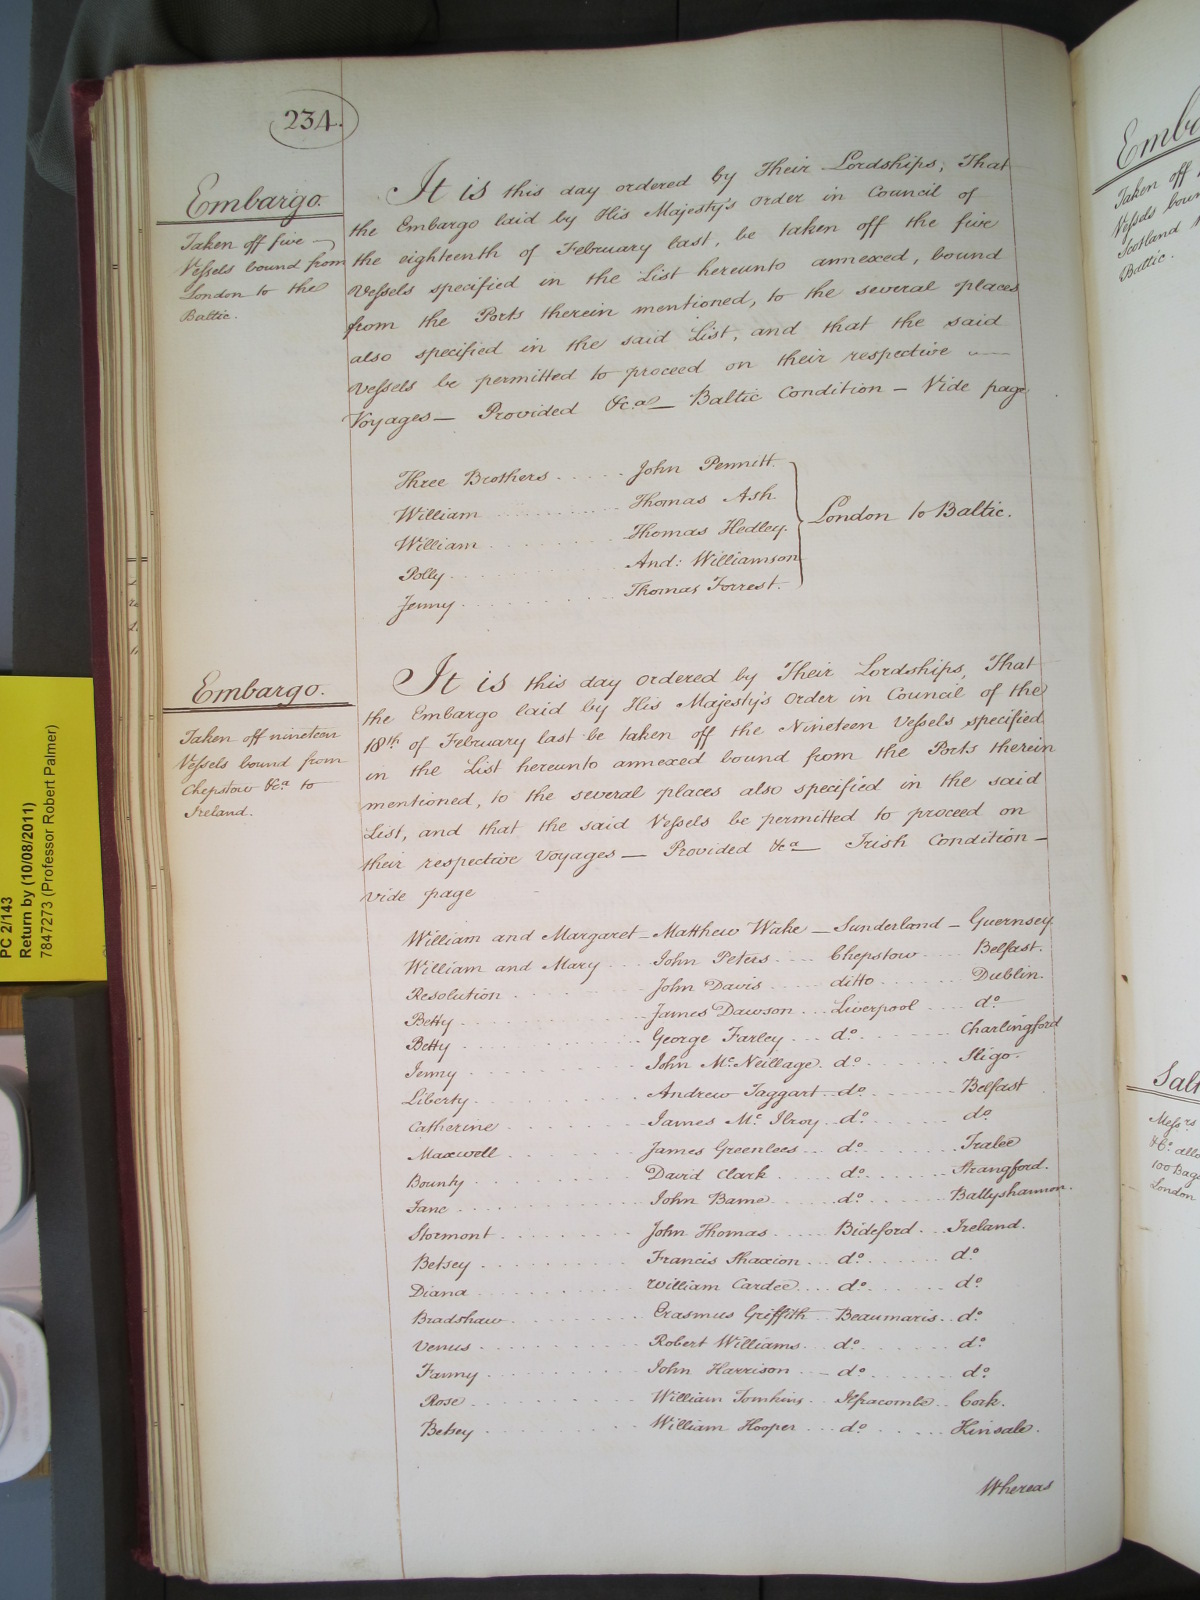 234.
Embargo.
Taken off five
Vessels bound from
London to the
Baltic.
It is this day ordered by Their Lordships, That
the Embargo laid by His Majesty's Order in Council of
the eighteenth of February last, be taken off the five
Vessels specified in the List hereunto annexed, bound
from the Ports therein mentioned, to the several places
also specified in the said List, and that the said
Vessels be permitted to proceed on their respective
Voyages — Provided &c.a — Baltic Condition — Vide page
Three Brothers ..... John Pennitt
William ..... Thomas Ash
William ..... Thomas Hedley.
Polly ..... And: Williamson
Jenny ..... Thomas Forrest.
London to Baltic.
Embargo.
Taken off nineteen
Vessels bound from
Chepstow &c.a to
Ireland.
It is this day ordered by Their Lordships, That
the Embargo laid by His Majesty's Order in Council of the
18th of February last be taken off the Nineteen Vessels specified
in the List hereunto annexed bound from the Ports therein
mentioned, to the several places also specified in the said
List, and that the said Vessels be permitted to proceed on
their respective Voyages — Provided &c.a — Irish Condition —
vide page
William and Margaret — Matthew Wake — Sunderland — Guernsey
William and Mary ... John Peters .... Chepstow .... Belfast.
Resolution ..... John Davis ..... ditto ..... Dublin.
Betty ..... James Dawson ... Liverpool ... do
Betty ..... George Farley ... do ..... Charlingford
Jenny ..... John McNeillage. do ..... Sligo.
Liberty ..... Andrew Taggart do ..... Belfast
Catherine ..... James Mc Ilroy do ..... do
Maxwell ..... James Greenlees ... do ..... Tralee
Bounty ..... David Clark ..... do ..... Strangford.
Jane ..... John Bame ..... do ..... Ballyshannon.
Stormont ..... John Thomas ..... Bideford ... Ireland.
Betsey ..... Francis Thaxion ... do ..... do
Diana ..... William Cardee ... do ..... do
Bradshaw ..... Erasmus Griffith Beaumaris .. do
Venus ..... Robert Williams. do ..... do
Fanny ..... John Harrison ... do ..... do
Rose ..... William Tomkins .. Ilfracombe .. Cork.
Betsey ..... William Hooper ... do ..... Kinsale.
Whereas
PC 2/143
Return by (10/08/2011)
7847273 (Professor Robert Palmer)
Taken off
Vessels boun
Scotland
Baltic.
Messrs
&Co. allo
100 Bags
London